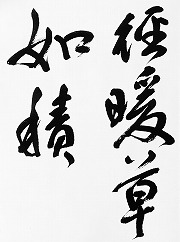 徑暖草
如積